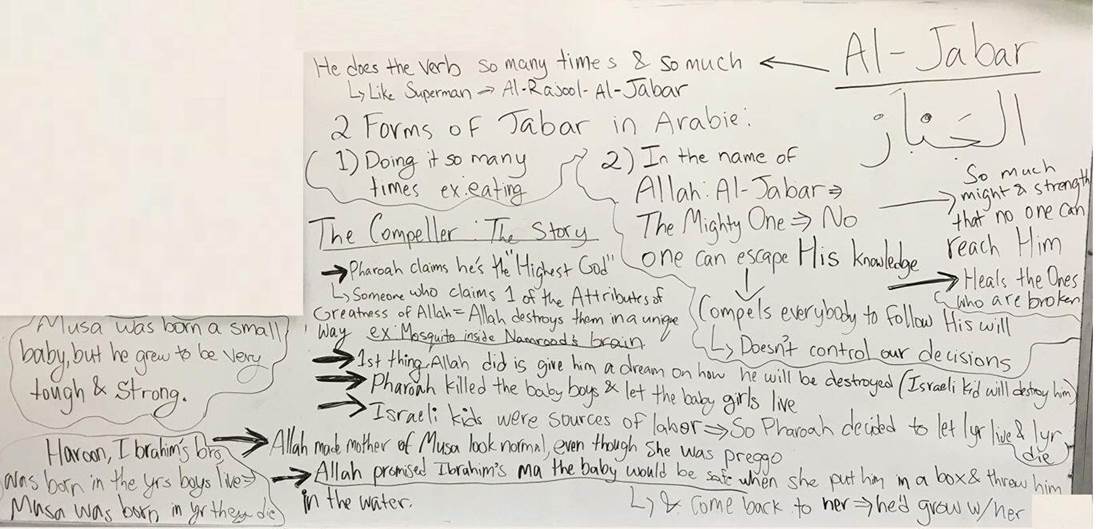 Al-Jabar
الجَبَّار
He does the verb so many times & so much ←
↳ Like Superman → Al-Rajool-Al-Jabar
2 Forms of Jabar in Arabic:
1) Doing it so many
times ex: eating
2) In the name of
Allah: Al-Jabar ⇒
The Mighty One ⇒ No
one can escape His knowledge
↓
Compels everybody to follow His will
↳ Doesn't control our decisions
→ So much
might & strength
that no one can
reach Him
→ Heals the Ones
who are broken
The Compeller: The Story
→ Pharoah claims he's the "Highest God"
↳ Someone who claims 1 of the Attributes of
Greatness of Allah = Allah destroys them in a unique
way ex: Mosquito inside Namrood's brain
→ 1st thing Allah did is give him a dream on how he will be destroyed (Israeli kid will destroy him)
→ Pharoah killed the baby boys & let the baby girls live
→ Israeli kids were sources of labor ⇒ So Pharoah decided to let 1yr live & 1yr
die
→ Allah made mother of Musa look normal, even though she was preggo
→ Allah promised Ibrahim's ma the baby would be safe when she put him in a box & threw him
in the water.
↳ & come back to her ⇒ he'd grow w/her
Musa was born a small
baby, but he grew to be very
tough & strong.
Haroon, Ibrahim's bro
was born in the yrs boys live ⇒
Musa was born in yr they die